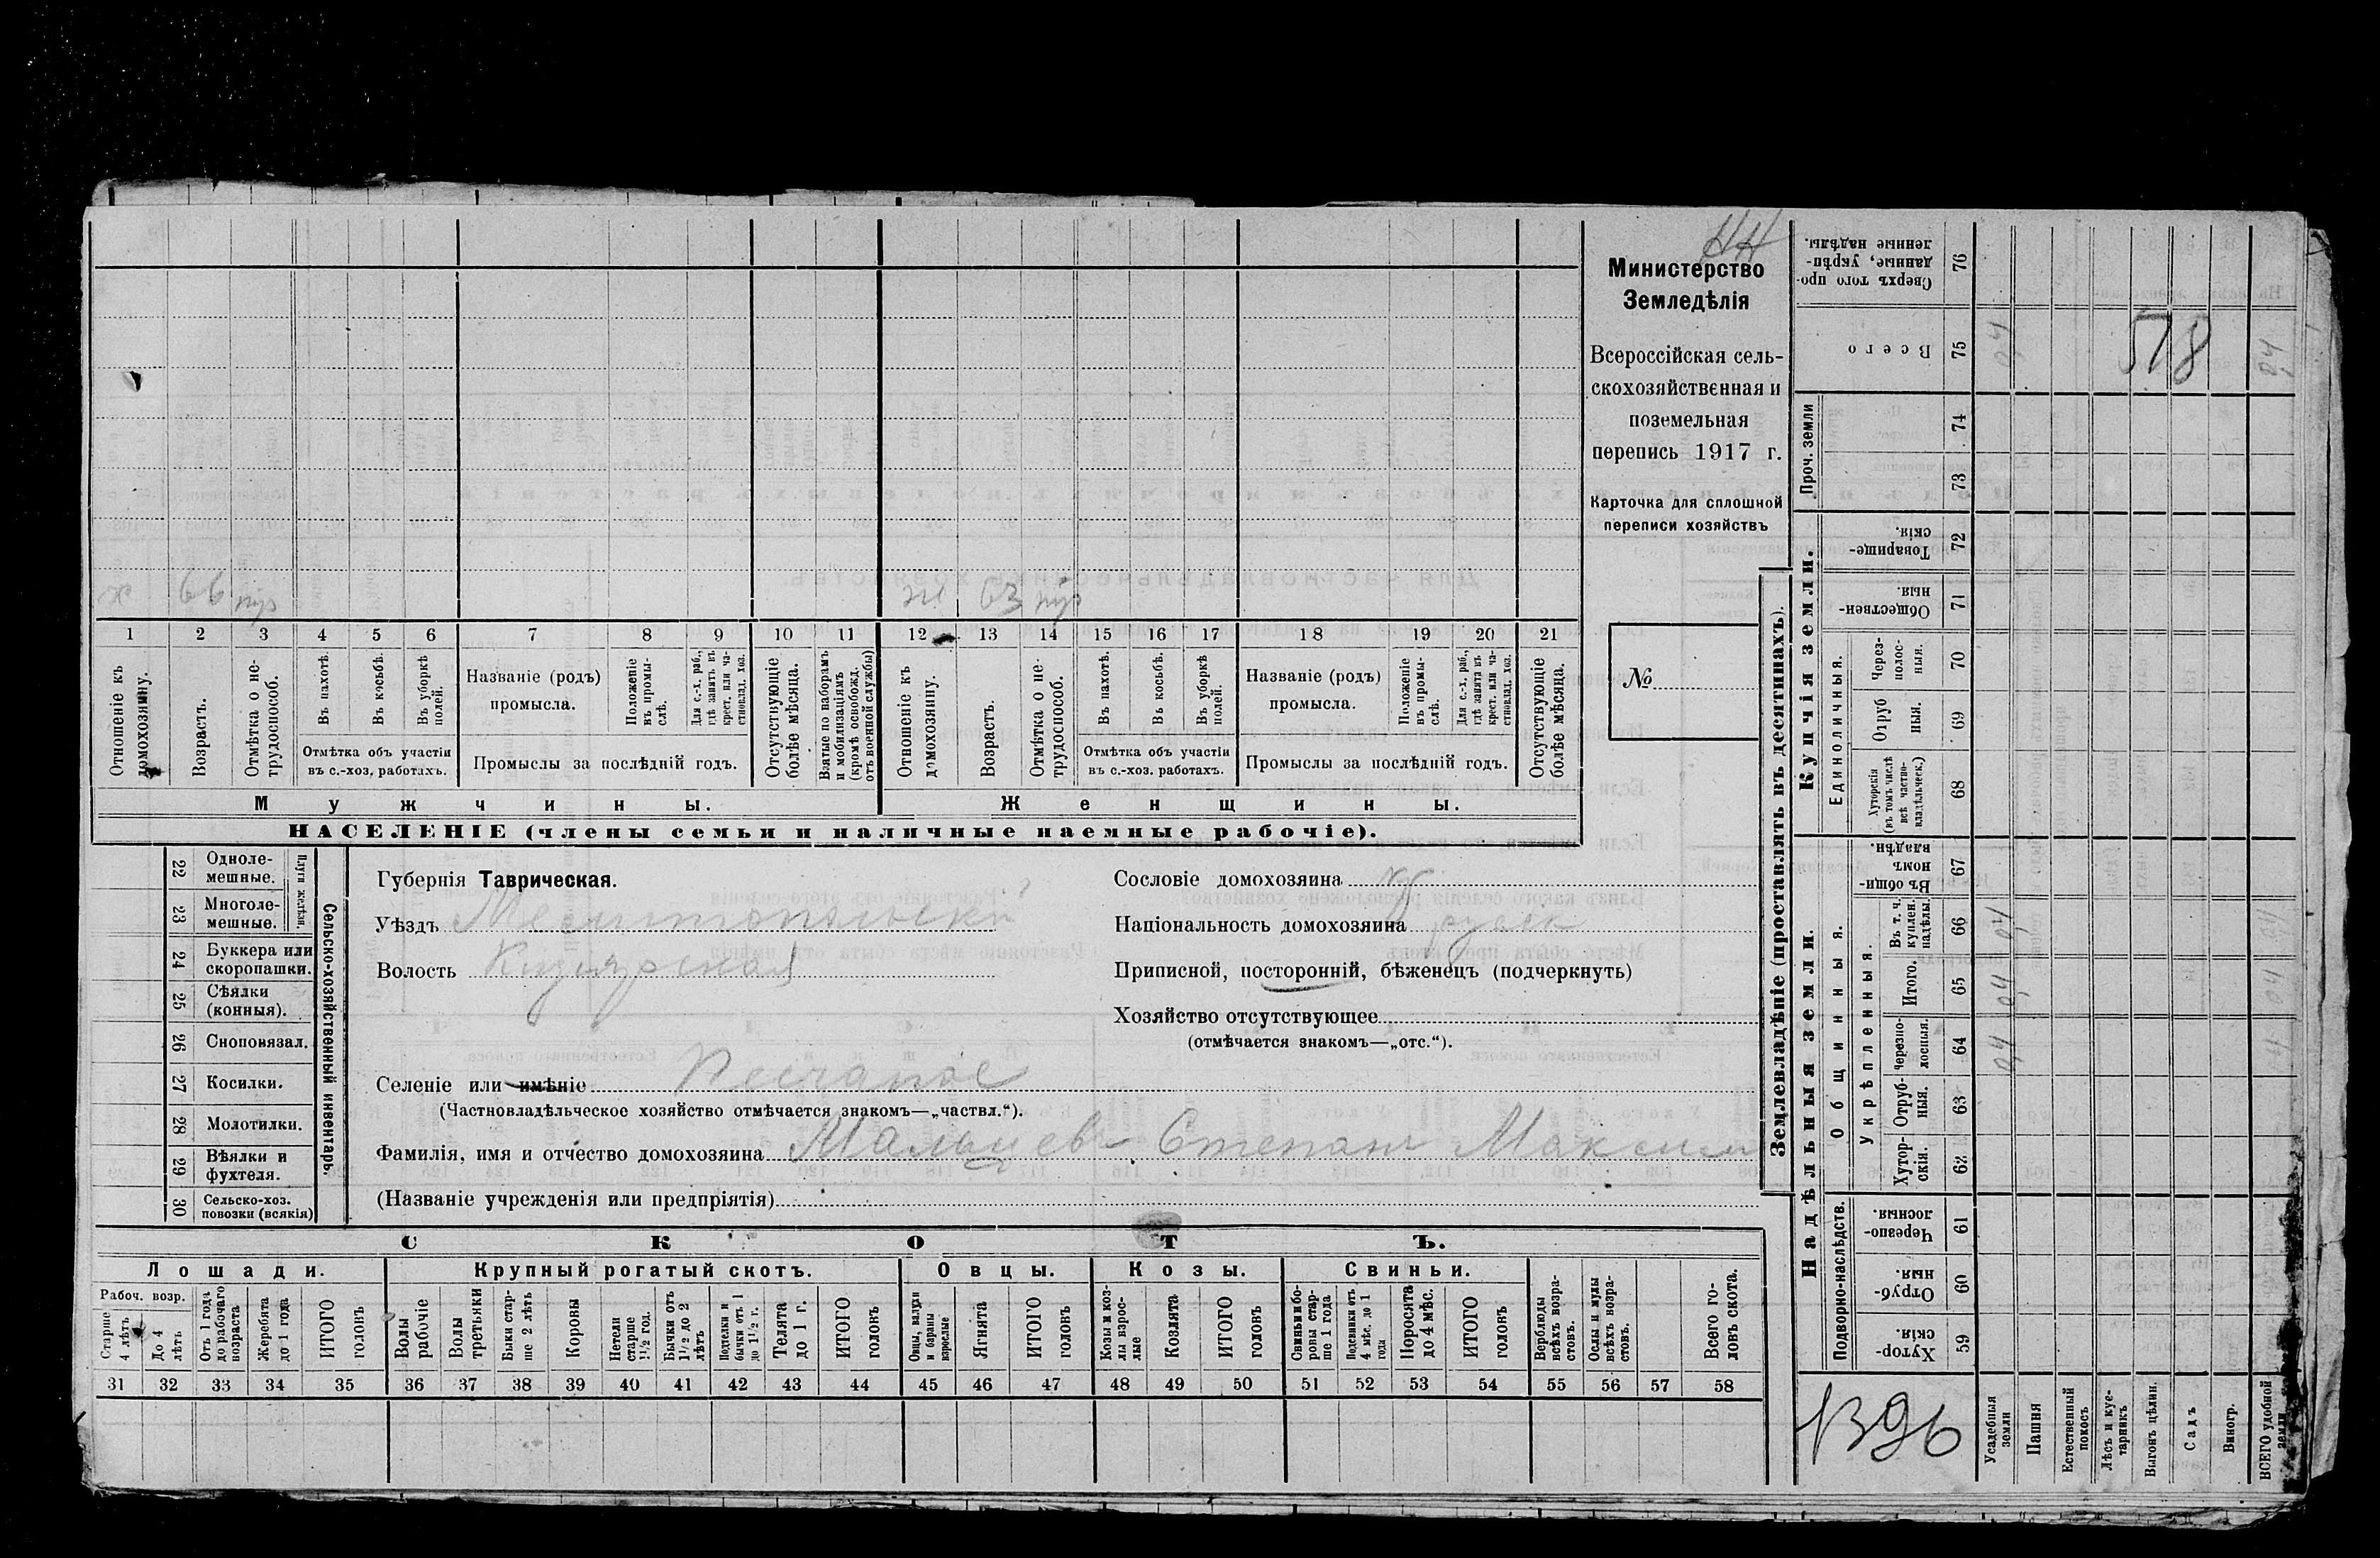 НН
Министерство
Земледѣлія
Всероссійская сель-
скохозяйственная и
поземельная
перепись 1917 г.
Карточка для сплошной
переписи хозяйствъ
№
х 66 ж 63
1 2 3 4 5 6 7 8 9 10 11 12 13 14 15 16 17 18 19 20 21
Отношеніе къ домохозяину.
Возрастъ.
Отмѣтка о не-трудоспособ.
Въ пахотѣ.
Въ косьбѣ.
Въ уборкѣ полей.
Отмѣтка объ участіи
въ с.-хоз. работахъ.
Названіе (родъ)
промысла.
Положеніе въ промы-слѣ.
Для с.-х. раб., гдѣ занятъ въ крест. или ча-стновлад. хоз.
Промыслы за послѣдній годъ.
Отсутствующіе болѣе мѣсяца.
Взятые по наборамъ и мобилизаціямъ (кромѣ освобожд. отъ военной службы)
Отношеніе къ домохозяину.
Возрастъ.
Отмѣтка о не-трудоспособ.
Въ пахотѣ.
Въ косьбѣ.
Въ уборкѣ полей.
Отмѣтка объ участіи
въ с.-хоз. работахъ.
Названіе (родъ)
промысла.
Положеніе въ промы-слѣ.
Для с.-х. раб., гдѣ занята въ крест. или ча-стновлад. хоз.
Промыслы за послѣдній годъ.
Отсутствующіе болѣе мѣсяца.
Мужчины. Женщины.
НАСЕЛЕНІЕ (члены семьи и наличные наемные рабочіе).
22 Одноле-мешные.
23 Многоле-мешные.
Плуги желѣзн.
24 Буккера или скоропашки.
25 Сѣялки (конныя).
26 Сноповязал.
27 Косилки.
28 Молотилки.
29 Вѣялки и фухтеля.
30 Сельско-хоз. повозки (всякія)
Сельско-хозяйственный инвентарь.
Губернія Таврическая.
Уѣздъ Мелитопольскій
Волость Кизіярская
Сословіе домохозяина
Національность домохозяина русск
Приписной, посторонній, бѣженецъ (подчеркнуть)
Хозяйство отсутствующее
(отмѣчается знакомъ—„отс.“).
Селеніе или имѣніе Песчаное
(Частновладѣльческое хозяйство отмѣчается знакомъ—„частвл.“).
Фамилія, имя и отчество домохозяина Мальцев Степанъ Максим
(Названіе учрежденія или предпріятія)
СКОТЪ.
Лошади. Крупный рогатый скотъ. Овцы. Козы. Свиньи.
Рабоч. возр.
Старше 4 лѣтъ
До 4 лѣтъ
Отъ 1 года до рабочаго возраста
Жеребята до 1 года
ИТОГО головъ
Волы рабочіе
Волы третьяки
Быки стар-ше 2 лѣтъ
Коровы
Нетели старше 1½ год.
Бычки отъ 1½ до 2 лѣтъ
Подтелки и бычки отъ 1 до 1½ г.
Телята до 1 г.
ИТОГО головъ
Овцы, валухи и бараны взрослые
Ягнята
ИТОГО головъ
Козы и коз-лы взрос-лые
Козлята
ИТОГО головъ
Свиньи и бо-ровы стар-ше 1 года
Подсвинки отъ 4 мѣс. до 1 года
Поросята до 4 мѣс.
ИТОГО головъ
Верблюды всѣхъ возра-стовъ.
Ослы и мулы всѣхъ возра-стовъ.
Всего го-ловъ скота.
31 32 33 34 35 36 37 38 39 40 41 42 43 44 45 46 47 48 49 50 51 52 53 54 55 56 57 58
Землевладѣніе (проставлять въ десятинахъ).
Сверхъ того про-данные, укрѣп-ленные надѣлы. 76
Всего 75 04 518 04
Проч. земли 74 73
Купчія земли.
Товарище-скія. 72
Обществен-ныя. 71
Единоличныя.
Через-полос-ныя. 70
Отруб ныя. 69
Хуторскія (въ томъ числѣ всѣ частно-владѣльческ.) 68
Надѣльныя земли.
Общинныя.
Въ общи-номъ владѣн. 67
Укрѣпленныя.
Въ т. ч. куплен. надѣлы. 66 04
Итого. 65 04
Черезпо-лосныя. 64 04
Отруб-ныя. 63
Хутор-скія. 62
Подворно-наслѣдств.
Черезпо-лосныя. 61
Отруб-ныя. 60
Хутор-скія. 59
1396
Усадебныя земли
Пашня
Естественный покосъ
Лѣсъ и кус-тарникъ
Выгонъ цѣлин.
Садъ
Виногр.
ВСЕГО удобной земли